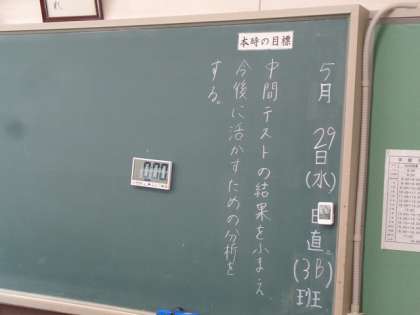 5月29日(水)日直(3B)班
本時の目標
中間テストの結果をふまえ
今後に活かすための分析を
する。